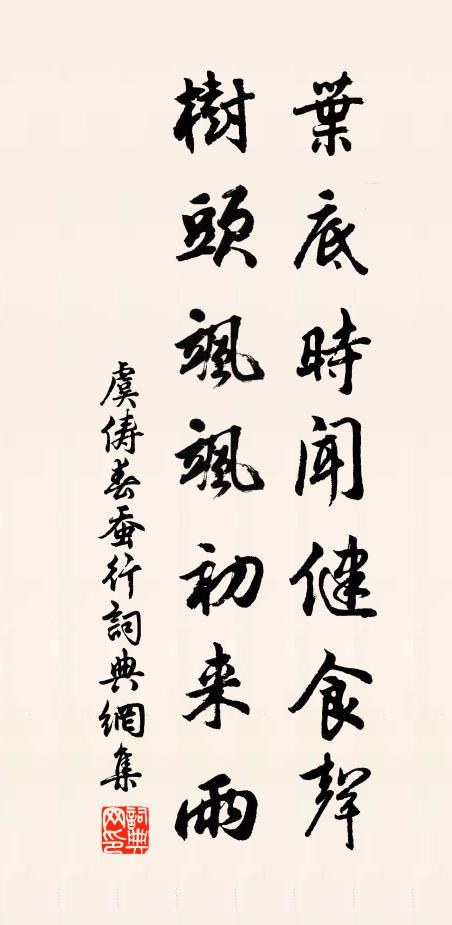 葉底時聞健食聲
樹頭颯颯初来雨
虞俦春蚕行詞典網集
詞典網印